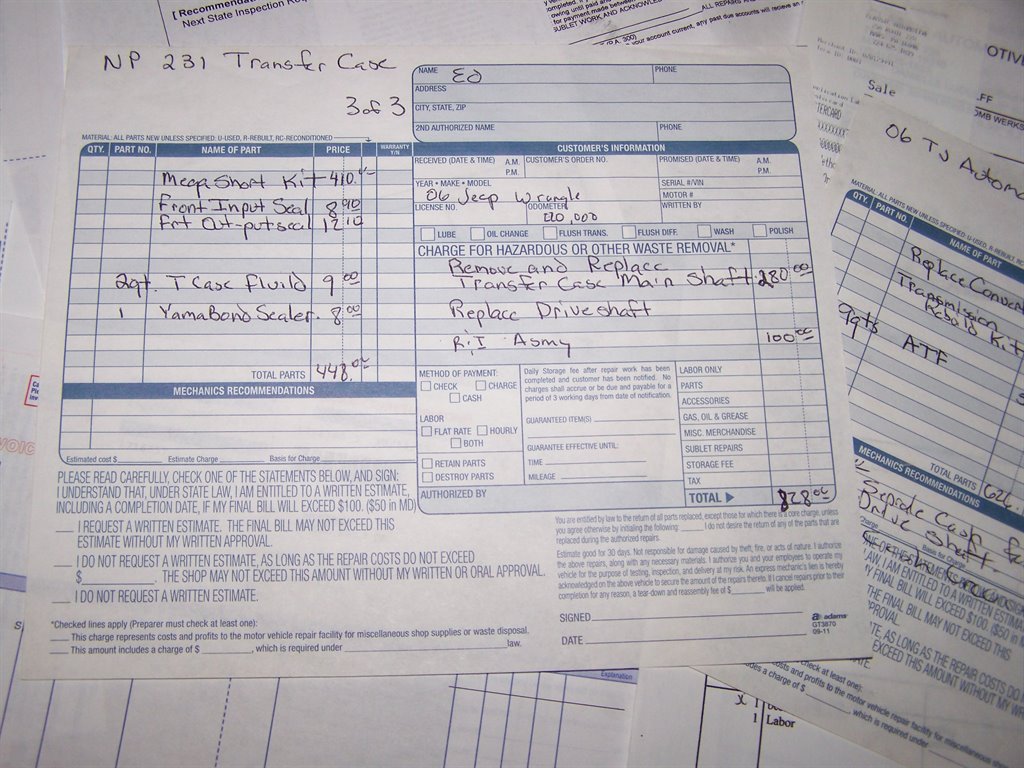 [Recommendat
Next State Inspection Req
owing until paid
for payment made between
SUBLET WORK AND ACKNOWLE
ALL REPAIRS AND
(P.A. 300)
your account current, any past due accounts will receive an
NP 231 Transfer Case
3 of 3
NAME Ed PHONE
ADDRESS
CITY, STATE, ZIP
2ND AUTHORIZED NAME PHONE
MATERIAL: ALL PARTS NEW UNLESS SPECIFIED: U-USED, R-REBUILT, RC-RECONDITIONED
QTY. PART NO. NAME OF PART PRICE WARRANTY Y/N
Mega Short Kit 410.
Front Input Seal 8 90
Frt Out-put seal 12 10
2qt. T Case Fluild 9 00
1 YamaBond Sealer. 8 00
TOTAL PARTS 448.00
MECHANICS RECOMMENDATIONS
Estimated cost $ Estimate Charge Basis for Charge
CUSTOMER'S INFORMATION
RECEIVED (DATE & TIME) A.M. P.M. CUSTOMER'S ORDER NO. PROMISED (DATE & TIME) A.M. P.M.
YEAR • MAKE • MODEL SERIAL #/VIN
06 Jeep Wrangle MOTOR #
LICENSE NO. ODOMETER WRITTEN BY
LUBE OIL CHANGE FLUSH TRANS. FLUSH DIFF. WASH POLISH
CHARGE FOR HAZARDOUS OR OTHER WASTE REMOVAL*
Remove and Replace
Transfer Case Main Shaft 280 00
Replac Driveshaft
R;I Asmy 100 00
METHOD OF PAYMENT:
CHECK CHARGE
CASH
LABOR
FLAT RATE HOURLY
BOTH
RETAIN PARTS
DESTROY PARTS
AUTHORIZED BY
Daily Storage fee after repair work has been
completed and customer has been notified. No
charges shall accrue or be due and payable for a
period of 3 working days from date of notification.
GUARANTEED ITEM(S)
GUARANTEE EFFECTIVE UNTIL:
TIME
MILEAGE
LABOR ONLY
PARTS
ACCESSORIES
GAS, OIL & GREASE
MISC. MERCHANDISE
SUBLET REPAIRS
STORAGE FEE
TAX
TOTAL 828 00
PLEASE READ CAREFULLY, CHECK ONE OF THE STATEMENTS BELOW, AND SIGN:
I UNDERSTAND THAT, UNDER STATE LAW, I AM ENTITLED TO A WRITTEN ESTIMATE,
INCLUDING A COMPLETION DATE, IF MY FINAL BILL WILL EXCEED $100. ($50 in MD)
I REQUEST A WRITTEN ESTIMATE. THE FINAL BILL MAY NOT EXCEED THIS
ESTIMATE WITHOUT MY WRITTEN APPROVAL.
I DO NOT REQUEST A WRITTEN ESTIMATE, AS LONG AS THE REPAIR COSTS DO NOT EXCEED
$ . THE SHOP MAY NOT EXCEED THIS AMOUNT WITHOUT MY WRITTEN OR ORAL APPROVAL.
I DO NOT REQUEST A WRITTEN ESTIMATE.
*Checked lines apply (Preparer must check at least one):
This charge represents costs and profits to the motor vehicle repair facility for miscellaneous shop supplies or waste disposal.
This amount includes a charge of $ , which is required under law.
You are entitled by law to the return of all parts replaced, except those for which there is a core charge, unless
you agree otherwise by initialing the following: I do not desire the return of any of the parts that are
replaced during the authorized repairs.
Estimate good for 30 days. Not responsible for damage caused by theft, fire, or acts of nature. I authorize
the above repairs, along with any necessary materials. I authorize you and your employees to operate my
vehicle for the purpose of testing, inspection, and delivery at my risk. An express mechanic's lien is hereby
acknowledged on the above vehicle to secure the amount of the repairs thereto. If I cancel repairs prior to their
completion for any reason, a tear-down and reassembly fee of $ will be applied.
SIGNED
DATE
adams
GT3870
09-11
OTIV
Sale
.FF
OMB WERKS
06 TJ Automa
MATERIAL: ALL PARTS NEW UNLESS SPECIFIED: U-USED, R-REBUILT, RC-RE
QTY. PART NO. NAME OF PART
Replace Convert
Transmission
Rebuld Kit
9qts ATF
TOTAL PARTS 626.
MECHANICS RECOMMENDATIONS
Drive Shaft
Basis for Charge
check at least one):
osts and profits to the motor vehicle repair facility for miscellaneous shop
des a charge of $ , which is required under
Explanation
x 1
1 Labor